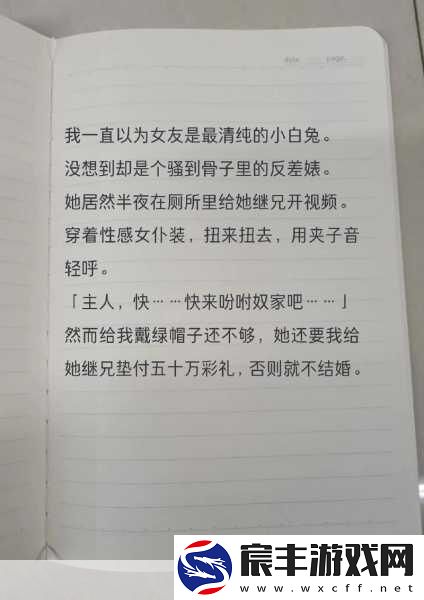 date page
我一直以为女友是最清纯的小白兔。
没想到却是个骚到骨子里的反差婊。
她居然半夜在厕所里给她继兄开视频。
穿着性感女仆装，扭来扭去，用夹子音
轻呼。
「主人，快……快来吩咐奴家吧……」
然而给我戴绿帽子还不够，她还要我给
她继兄垫付五十万彩礼，否则就不结婚。
宸丰游戏网
www.wxcff.net